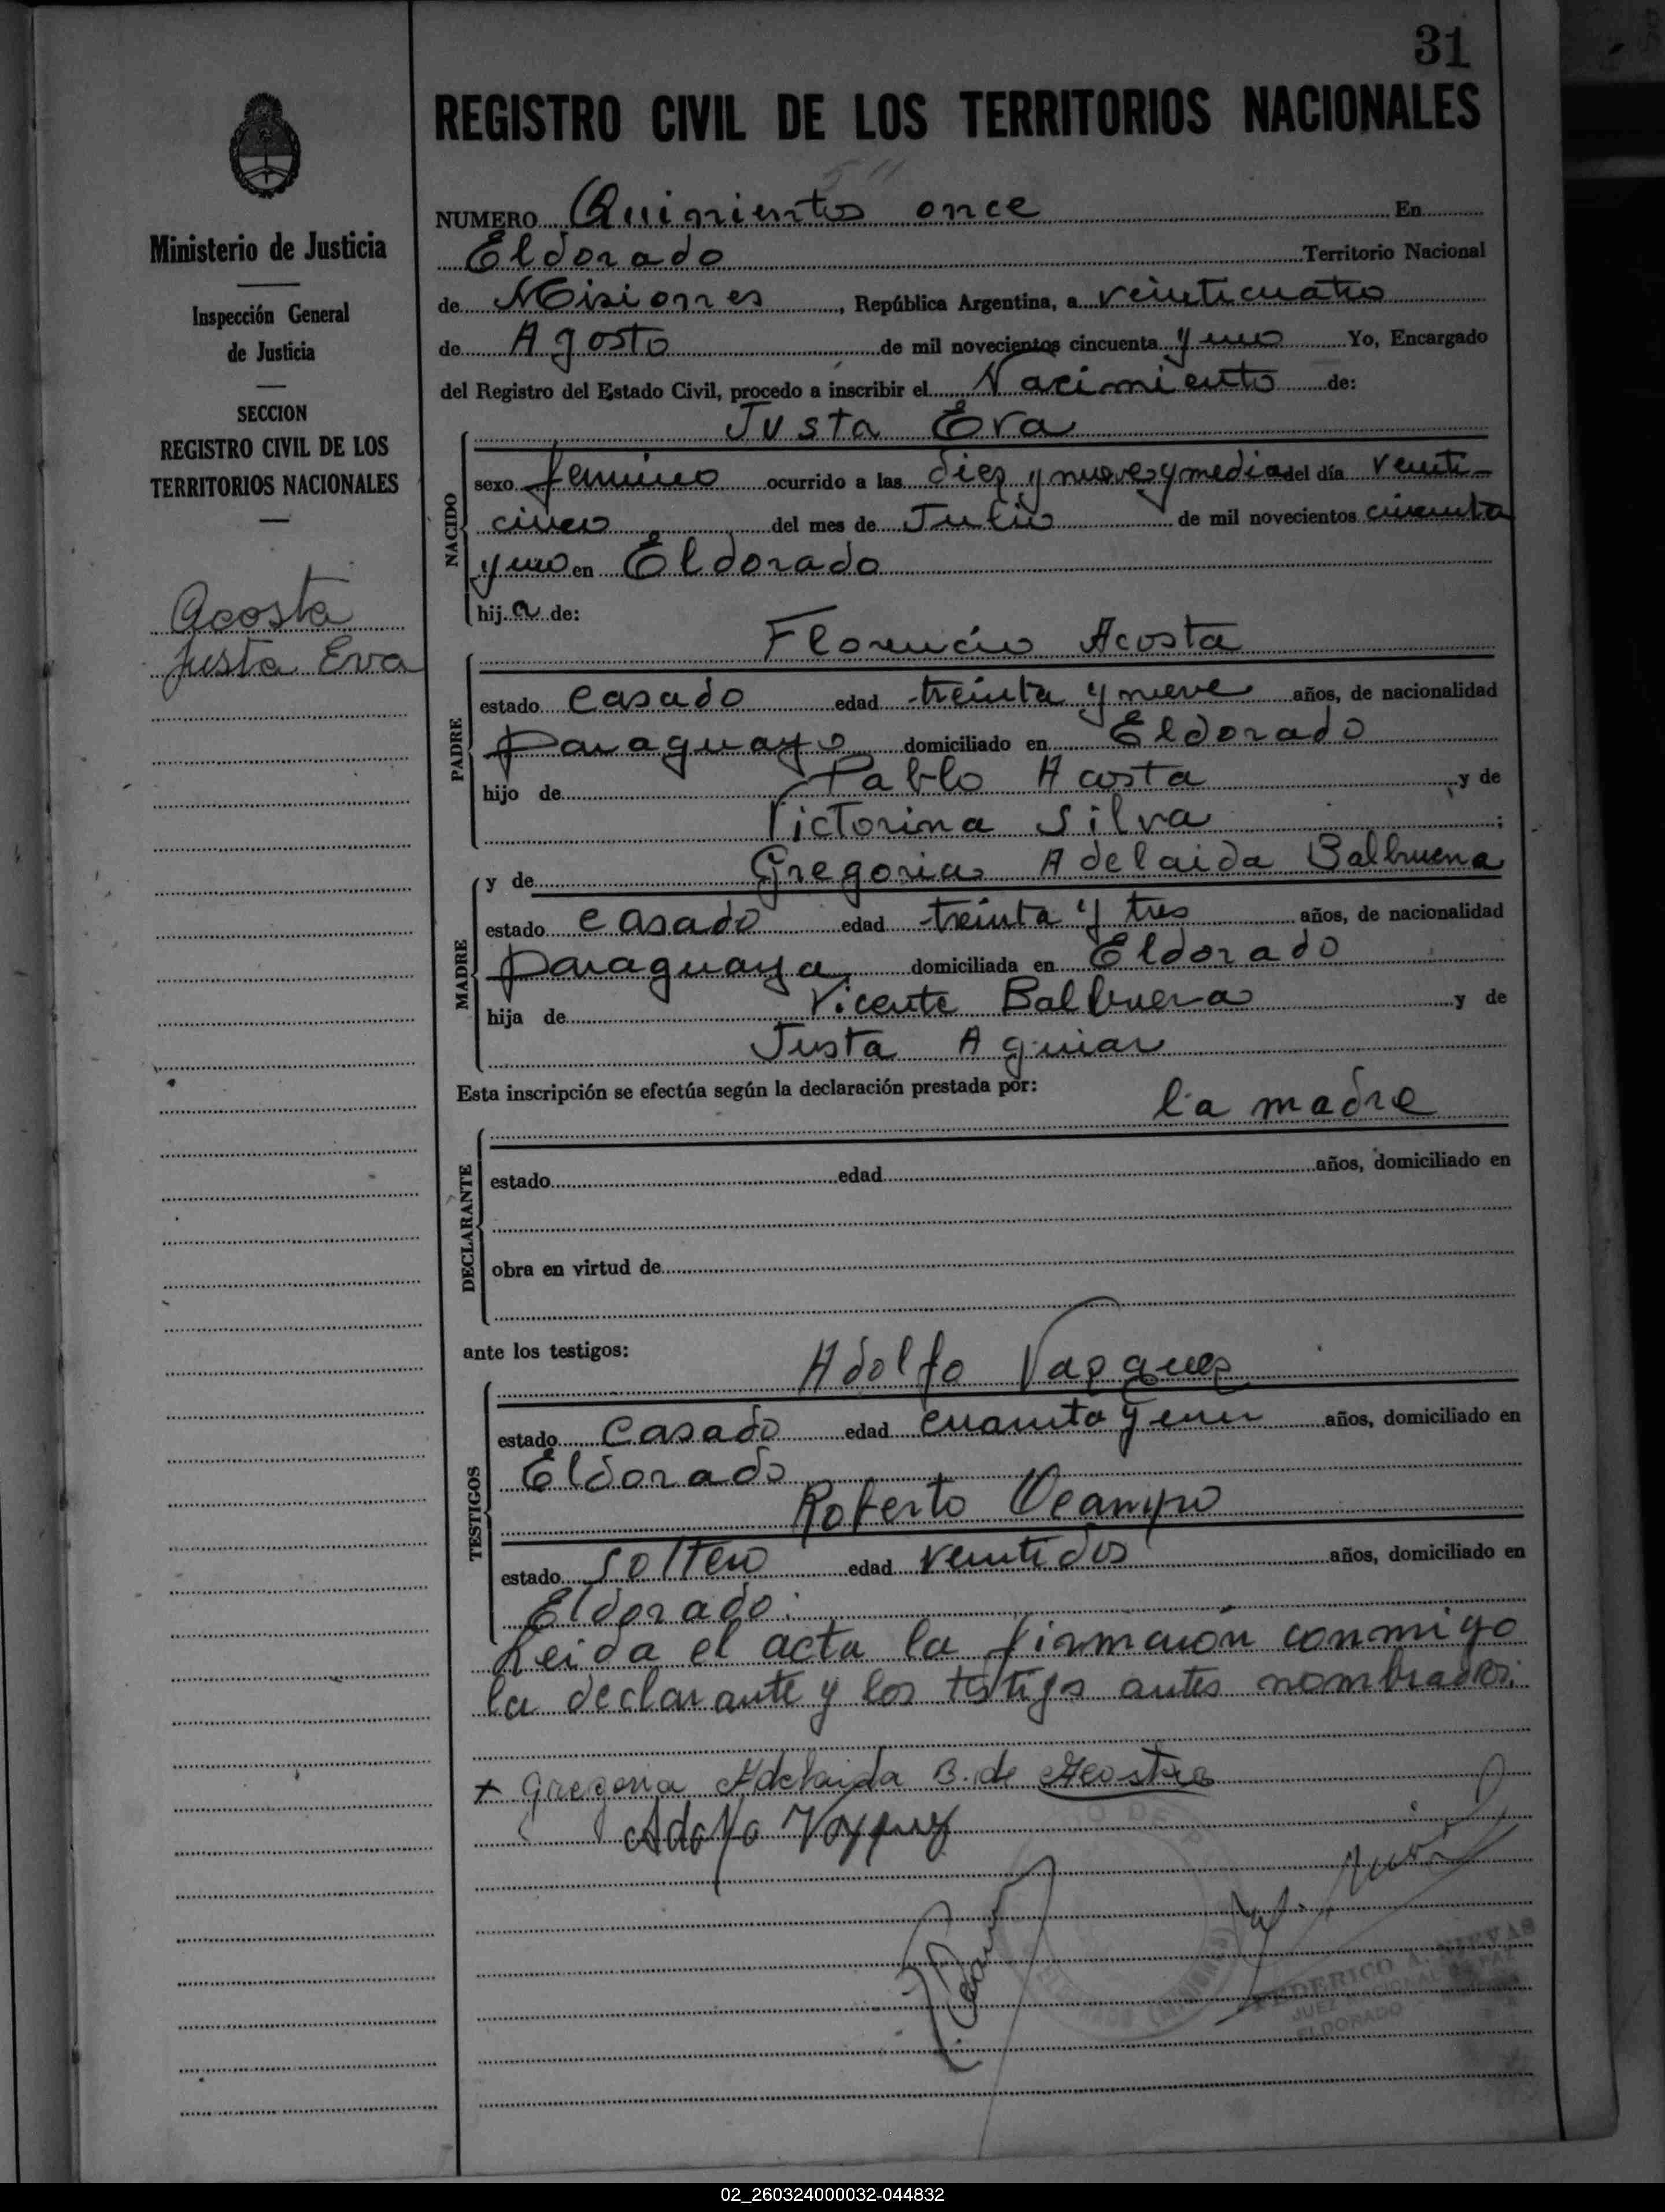 31
REGISTRO CIVIL DE LOS TERRITORIOS NACIONALES
511
Ministerio de Justicia
Inspección General
de Justicia
SECCION
REGISTRO CIVIL DE LOS
TERRITORIOS NACIONALES
Acosta
Justa Eva
NUMERO Quinientos once En
Eldorado Territorio Nacional
de Misiones, República Argentina, a veinticuatro
de Agosto de mil novecientos cincuenta y uno Yo, Encargado
del Registro del Estado Civil, procedo a inscribir el Nacimiento de:
Justa Eva
NACIDO
sexo femenino ocurrido a las diez y nueve y media del día veinti-
cinco del mes de Julio de mil novecientos cincuenta
y uno en Eldorado
hij a de:
Florencio Acosta
PADRE
estado casado edad treinta y nueve años, de nacionalidad
paraguayo domiciliado en Eldorado
hijo de Pablo Acosta y de
Victorina Silva ;
y de Gregoria Adelaida Balbuena
MADRE
estado casado edad treinta y tres años, de nacionalidad
paraguaya domiciliada en Eldorado
hija de Vicente Balbuena y de
Justa Aguiar
Esta inscripción se efectúa según la declaración prestada por:
la madre
DECLARANTE
estado edad años, domiciliado en
obra en virtud de
ante los testigos:
Adolfo Vazquez
TESTIGOS
estado casado edad cuarenta y un años, domiciliado en
Eldorado
Roberto Ocampo
estado soltero edad veintidos años, domiciliado en
Eldorado.
Leida el acta la firmaron conmigo
la declarante y los testigos antes nombrados.
+ Gregoria Adelaida B. de Acosta
Adolfo Vazquez
FEDERICO A. NIEVAS
JUEZ NACIONAL DE PAZ
ELDORADO
02_260324000032-044832